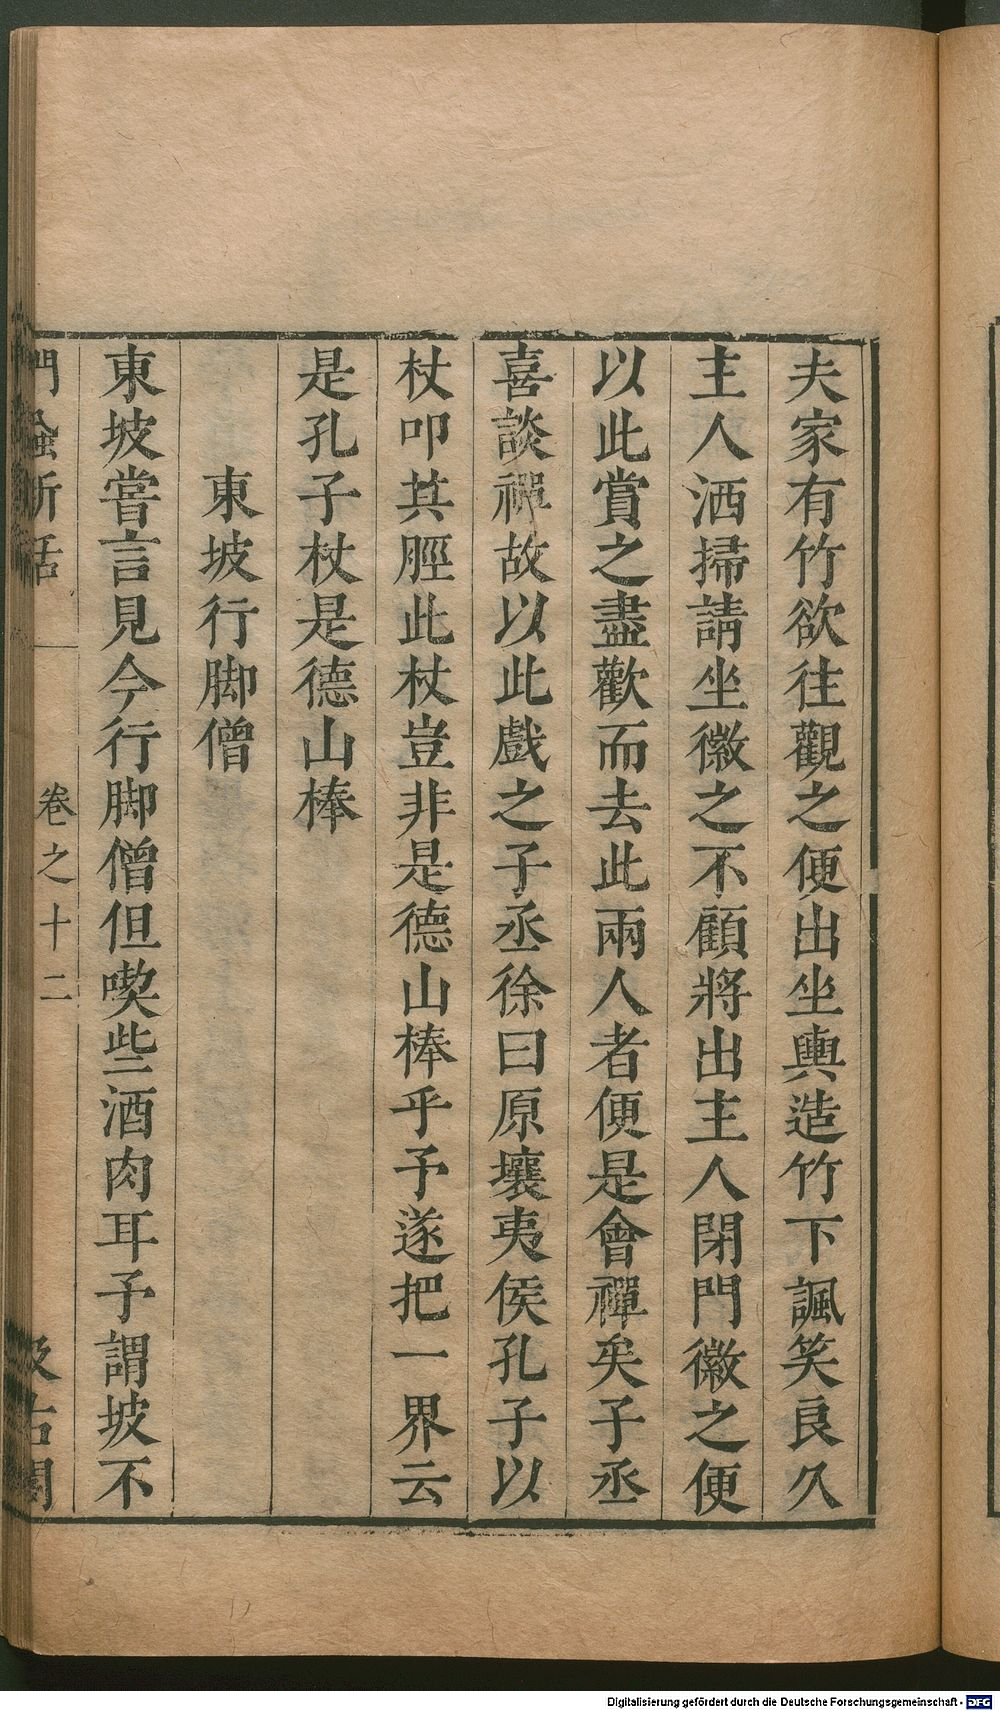 夫家有竹欲往觀之便出坐輿造竹下諷笑良久
主人洒掃請坐徽之不顧將出主人閉門徽之便
以此賞之盡歡而去此兩人者便是會禪矣子丞
喜談禪故以此戲之子丞徐曰原壤夷侯孔子以
杖叩其脛此杖豈非是德山棒乎予遂把一界云
是孔子杖是德山棒
東坡行脚僧
東坡嘗言見今行脚僧但喫些酒肉耳子謂坡不
門蝨新話
卷之十二
汲古閣
Digitalisierung gefördert durch die Deutsche Forschungsgemeinschaft - DFG